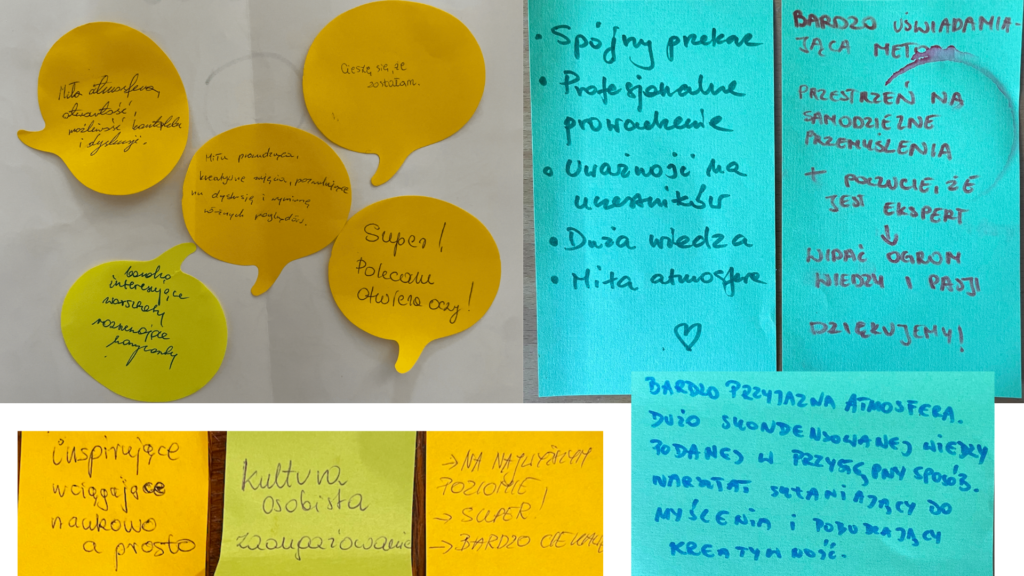 Miła atmosfera,
otwartość,
możliwość kontaktu
i dyskusji.
Cieszę się, że
zostałam.
Miła prowadząca,
kreatywne zajęcia, pozwalające
na dyskusję i wymianę
różnych poglądów.
Super!
Polecam
otwiera oczy!
bardzo
interesujące
warsztaty
rozwijające
horyzonty
• Spójny przekaz
• Profesjonalne
prowadzenie
• Uważność na
uczestników
• Duża wiedza
• Miła atmosfera
♡
BARDZO UŚWIADAMIA-
JĄCA METODA
PRZESTRZEŃ NA
SAMODZIELNE
PRZEMYŚLENIA
+ POCZUCIE, ŻE
JEST EKSPERT
↓
WIDAĆ OGROM
WIEDZY I PASJI
DZIĘKUJEMY!
BARDZO PRZYJAZNA ATMOSFERA.
DUŻO SKONDENSOWANEJ WIEDZY
PODANEJ W PRZYSTĘPNY SPOSÓB.
WARSZTAT SKŁANIAJĄCY DO
MYŚLENIA I POBUDZAJĄCY
KREATYWNOŚĆ.
inspirujące
wciągające
naukowo
a prosto
kultura
osobista
zaangażowanie
→ NA NAJWYŻSZYM
POZIOMIE
→ SUPER!
→ BARDZO CIEKAWE